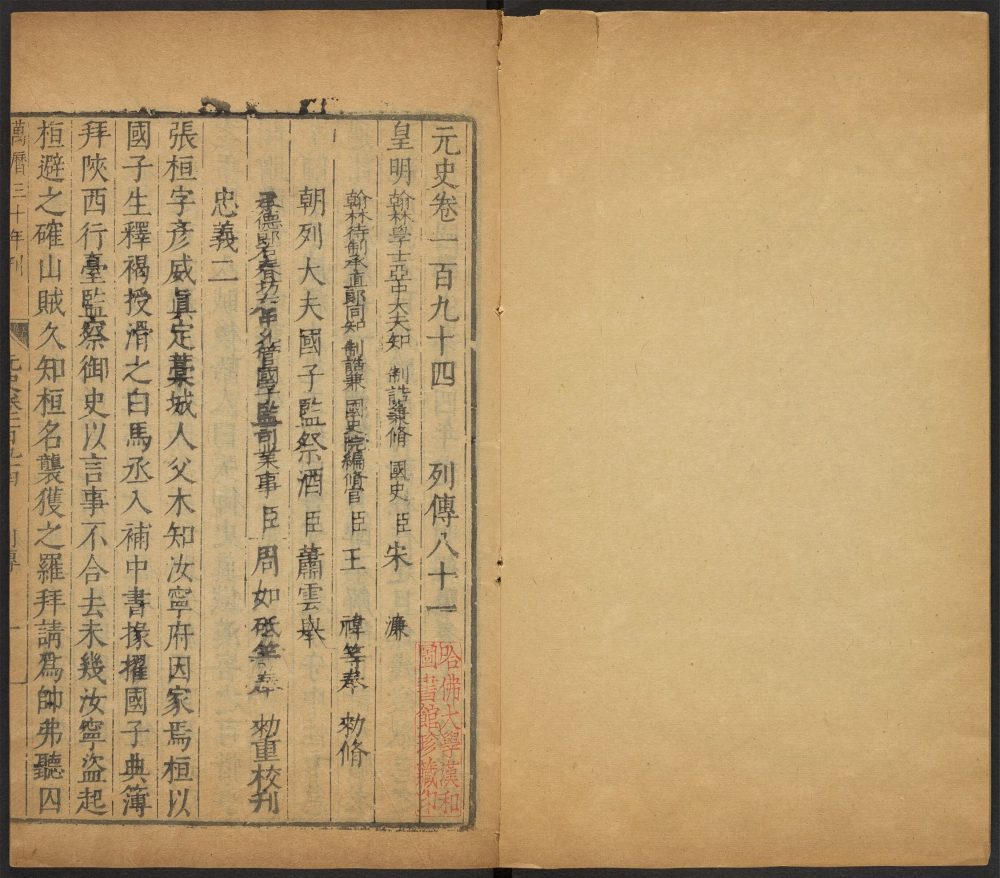 元史卷一百九十四 列傳八十一
皇明翰林學士亞中大夫知 制誥兼脩 國史 臣 宋 濂
翰林待制承直郎同知 制誥兼 國史院編脩官 臣 王 禕等奉 勑脩
朝列大夫國子監祭酒 臣 蕭雲舉
承德郎右春坊右中允管國子監司業事 臣 周如砥等奉 勑重校刊
忠義二
張桓字彥威眞定藁城人父木知汝寧府因家焉桓以
國子生釋褐授滑之白馬丞入補中書掾擢國子典簿
拜陝西行臺監察御史以言事不合去未幾汝寧盜起
桓避之確山賊久知桓名襲獲之羅拜請爲帥弗聽囚
萬曆三十年刊
元史卷一百九十四 列傳 一
哈佛大學漢和
圖書館珍藏印